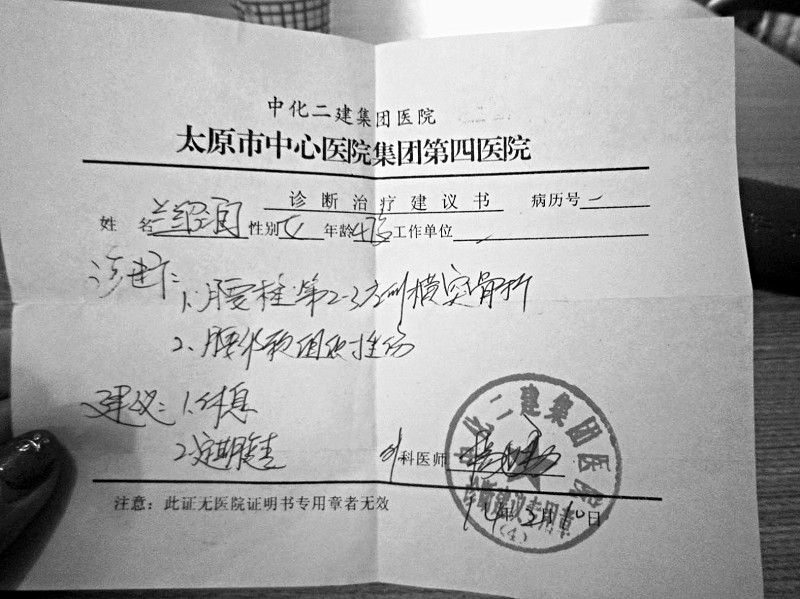 中化二建集团医院
太原市中心医院集团第四医院
诊断治疗建议书 病历号
姓名 性别 女 年龄 工作单位
诊断：
1. 腰椎第2-3左侧横突骨折
2. 腰部软组织挫伤
建议：1. 休息
2. 定期复查
外科医师
注意：此证无医院证明书专用章者无效
14年3月10日
中化二建集团医院
诊断建议专用章
(4)